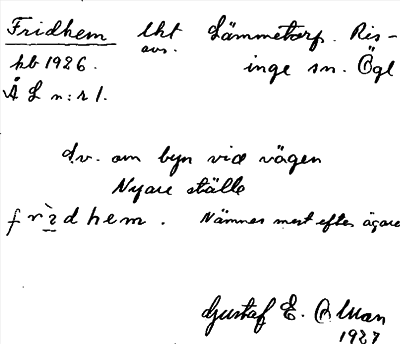 Fridhem lht Lämmetorp. Ris-
avs.
kb 1926. inge sn. Ögl
Å L n:r 1.
d.v. om byn vid vägen
Nyare ställe
frìdhem. Nämnes mest efter ägare
Gustaf E. Öman
1927